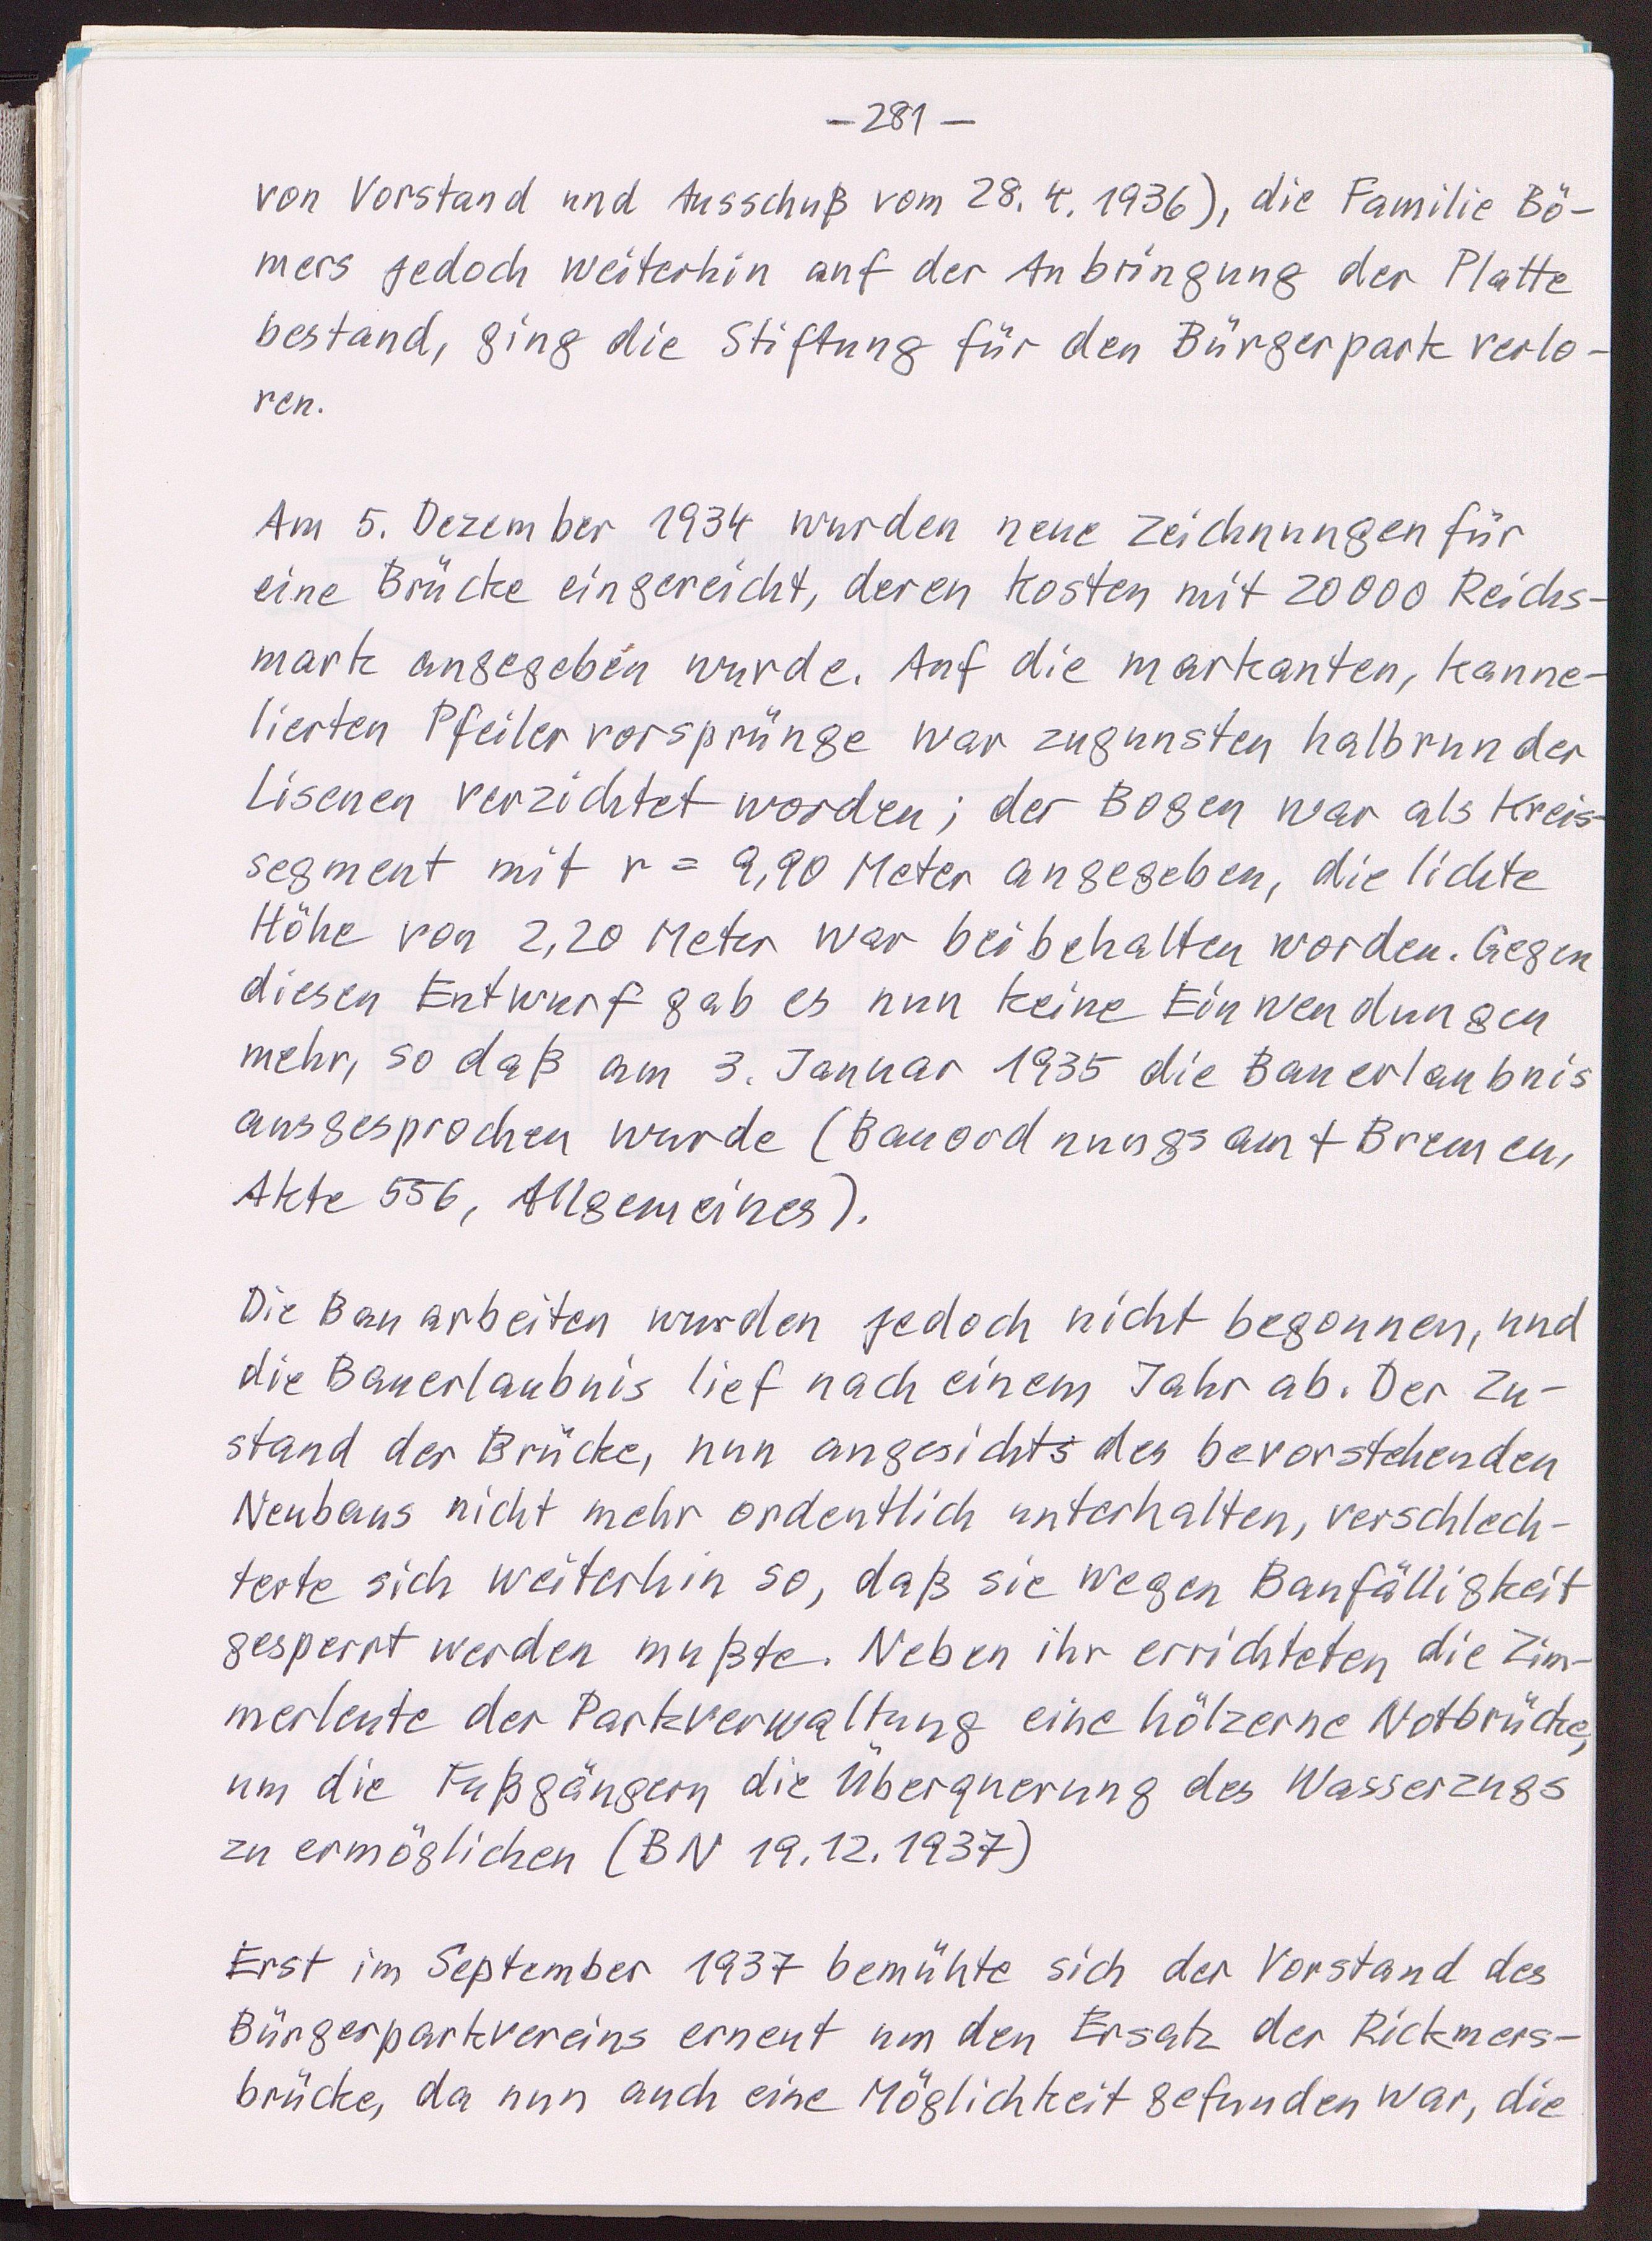 – 281 –
von Vorstand und Ausschuß vom 28. 4. 1936), die Familie Bö-
mers jedoch weiterhin auf der Anbringung der Platte
bestand, ging die Stiftung für den Bürgerpark verlo-
ren.
Am 5. Dezember 1934 wurden neue Zeichnungen für
eine Brücke eingereicht, deren Kosten mit 20000 Reichs-
mark angegeben wurde. Auf die markanten, kanne-
lierten Pfeilervorsprünge war zugunsten halbrunder
Lisenen verzichtet worden; der Bogen war als Kreis-
segment mit r = 9,90 Meter angegeben, die lichte
Höhe von 2,20 Meter war beibehalten worden. Gegen
diesen Entwurf gab es nun keine Einwendungen
mehr, so daß am 3. Januar 1935 die Bauerlaubnis
ausgesprochen wurde (Bauordnungsamt Bremen,
Akte 556, Allgemeines).
Die Bauarbeiten wurden jedoch nicht begonnen, und
die Bauerlaubnis lief nach einem Jahr ab. Der Zu-
stand der Brücke, nun angesichts des bevorstehenden
Neubaus nicht mehr ordentlich unterhalten, verschlech-
terte sich weiterhin so, daß sie wegen Baufälligkeit
gesperrt werden mußte. Neben ihr errichteten die Zim-
merleute der Parkverwaltung eine hölzerne Notbrücke,
um die Fußgängern die Überquerung des Wasserzugs
zu ermöglichen (BN 19.12.1937)
Erst im September 1937 bemühte sich der Vorstand des
Bürgerparkvereins erneut um den Ersatz der Rickmers-
brücke, da nun auch eine Möglichkeit gefunden war, die